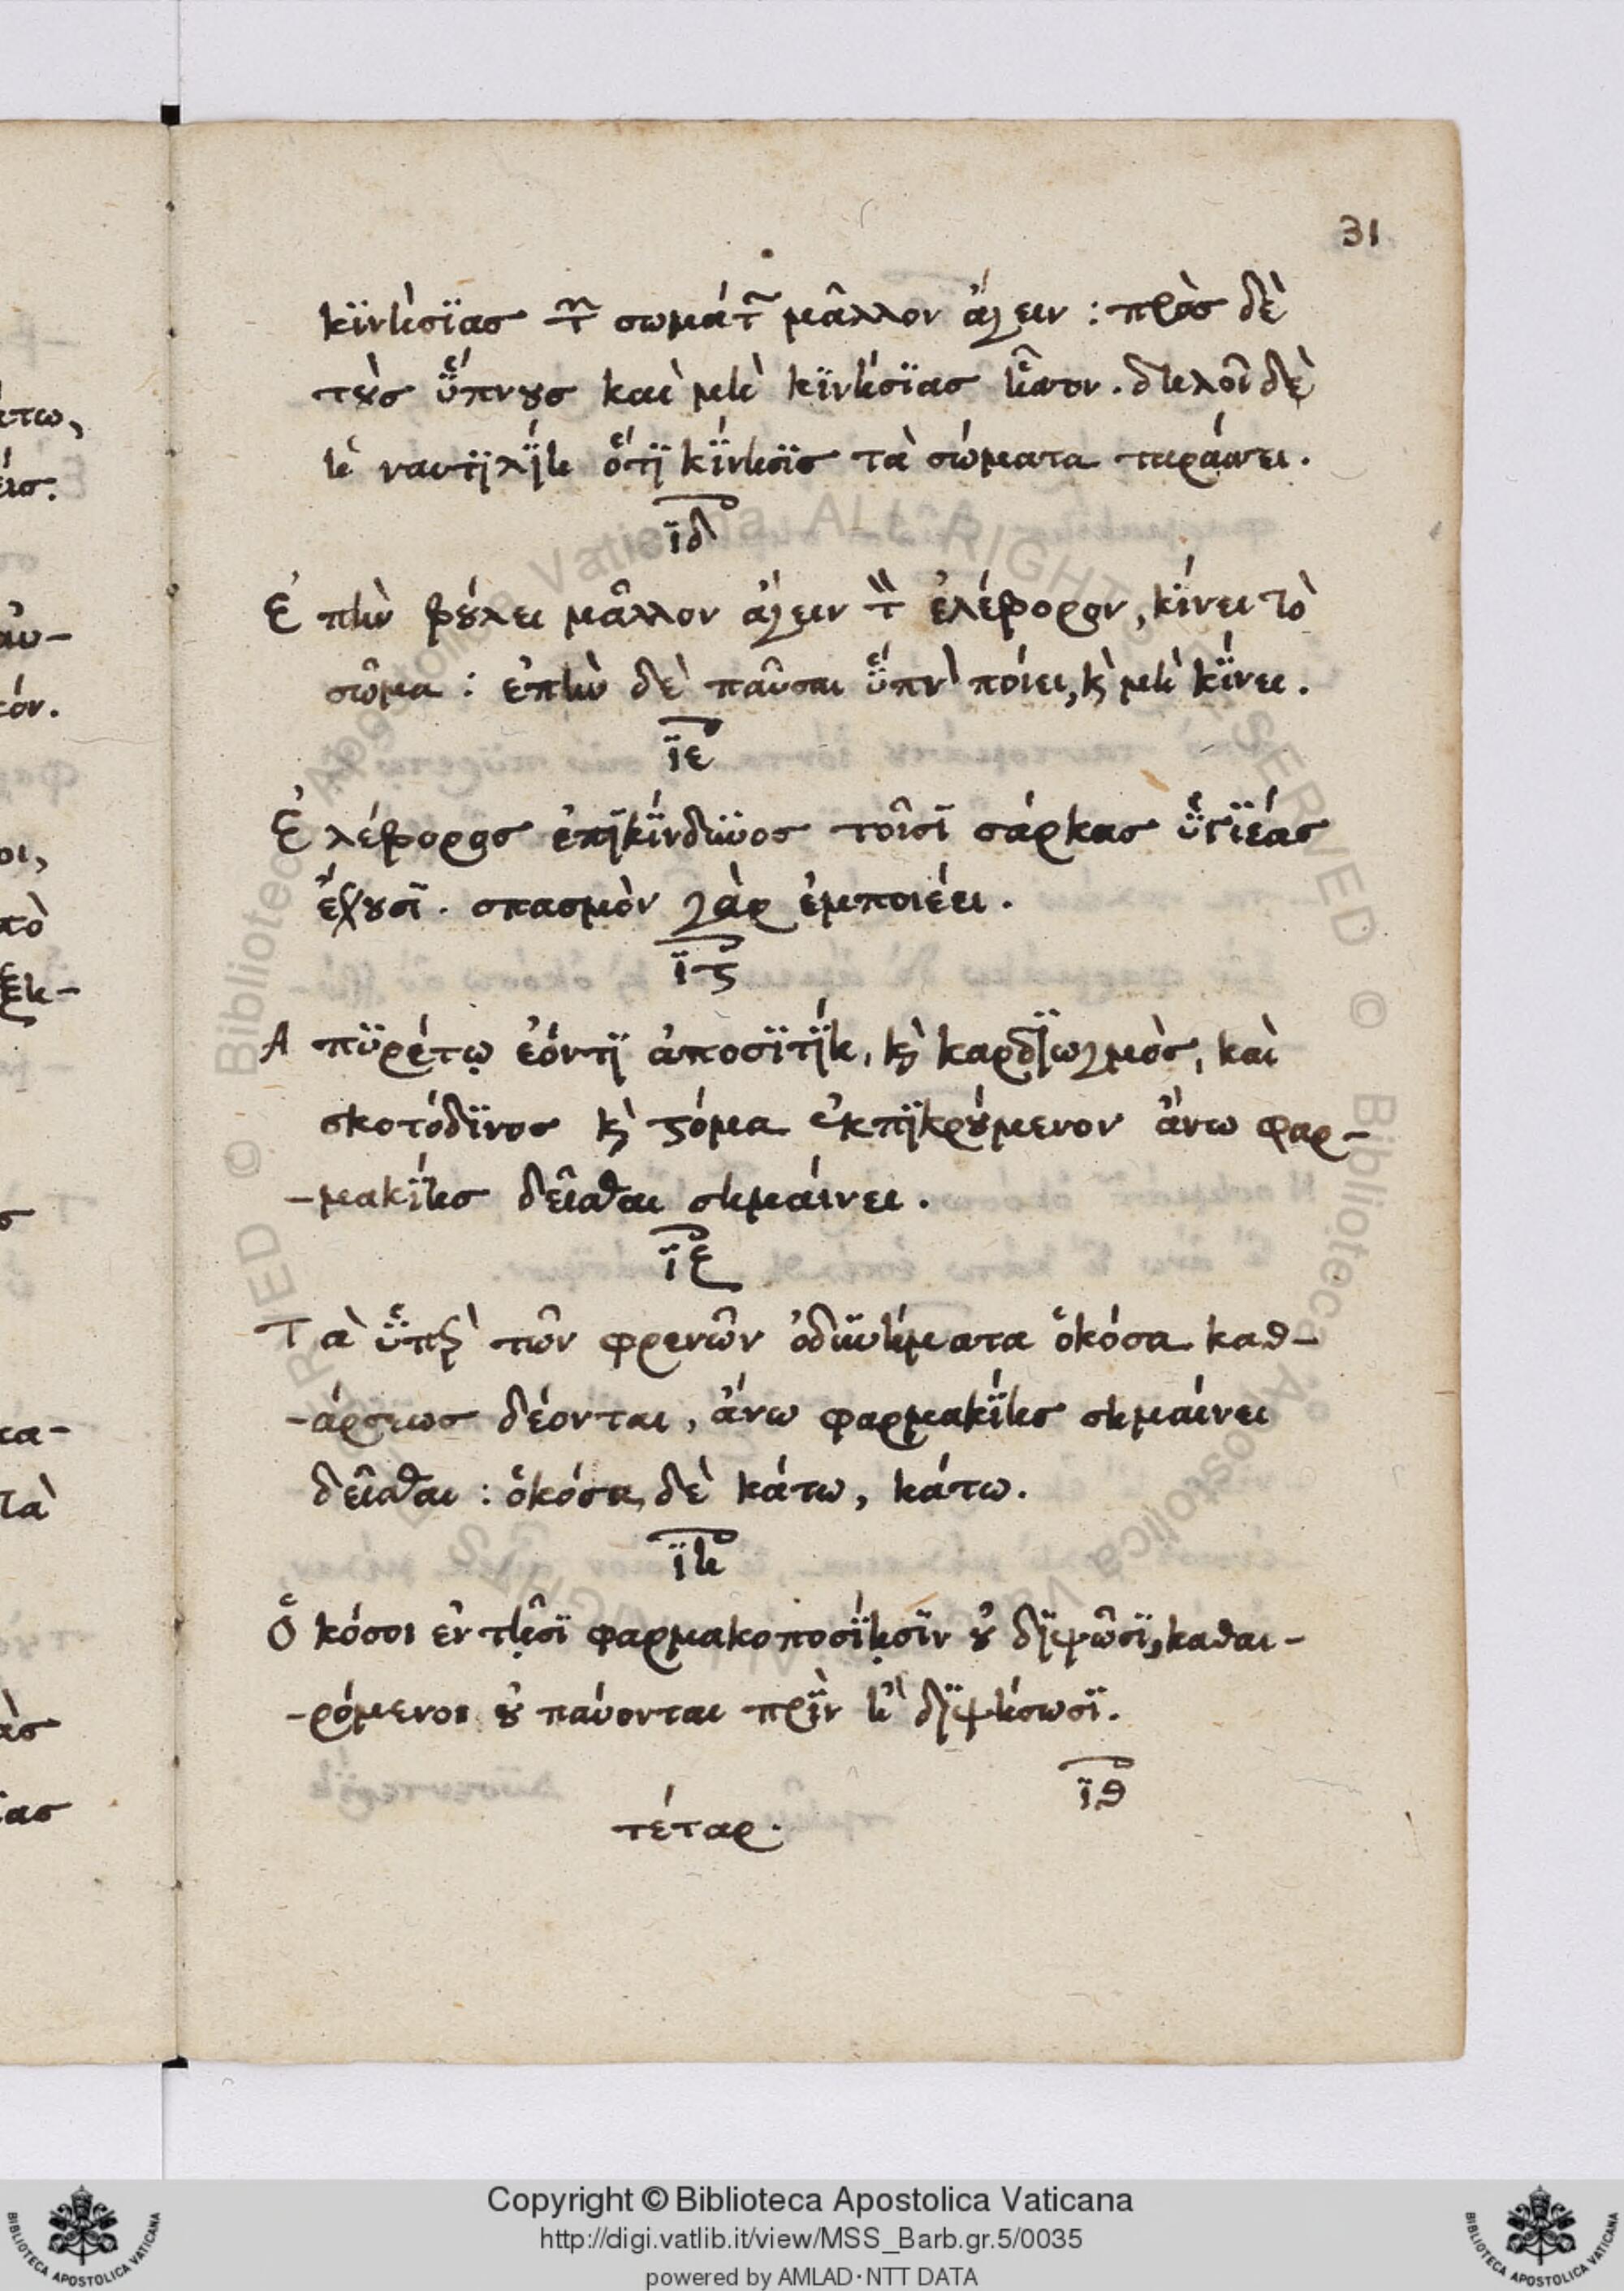 31
κϊνήσϊας τῶν σωμάτων μᾶλλον ἄγειν : πρὸς δὲ
τοὺς ὕπνους καὶ μὴ κϊνήσϊας ἧσσον. δηλοῖ δὲ
ἡ ναυτϊλΐη ὅτϊ κΐνησϊς τὰ σώματα ταράσσει.
ϊδ
Ἐπὴν βούλει μᾶλλον ἄγειν τὸν ἐλέβορον, κίνει τὸ
σῶμα : ἐπὴν δὲ παῦσαι ὕπνον ποίει, καὶ μὴ κΐνει.
ϊε
Ἐλέβορος ἐπϊκΐνδϋνος τοῖσϊ σάρκας ὑγϊέας
ἔχουσϊ. σπασμὸν γὰρ ἐμποιέει.
ϊϛ
Ἀπϋρέτῳ ἐόντϊ ἀποσϊτΐη, καὶ καρδϊωγμὸς, καὶ
σκοτόδϊνος καὶ στόμα ἐκπϊκρούμενον ἄνω φαρ-
-μακΐης δεῖσθαι σημαίνει.
ϊζ
Τὰ ὑπὲρ τῶν φρενῶν ὀδϋνήματα ὁκόσα καθ-
-άρσεως δέονται, ἄνω φαρμακΐης σημαίνει
δεῖσθαι : ὁκόσα δὲ κάτω, κάτω.
ϊη
Ὁκόσοι ἐν τῇσϊ φαρμακοποσΐῃσϊν οὐ δϊψῶσϊ, καθαι-
-ρόμενοι οὐ παύονται πρὶν ἢ δϊψήσωσϊ.
ϊθ
τέταρ.
Copyright © Biblioteca Apostolica Vaticana
http://digi.vatlib.it/view/MSS_Barb.gr.5/0035
powered by AMLAD·NTT DATA